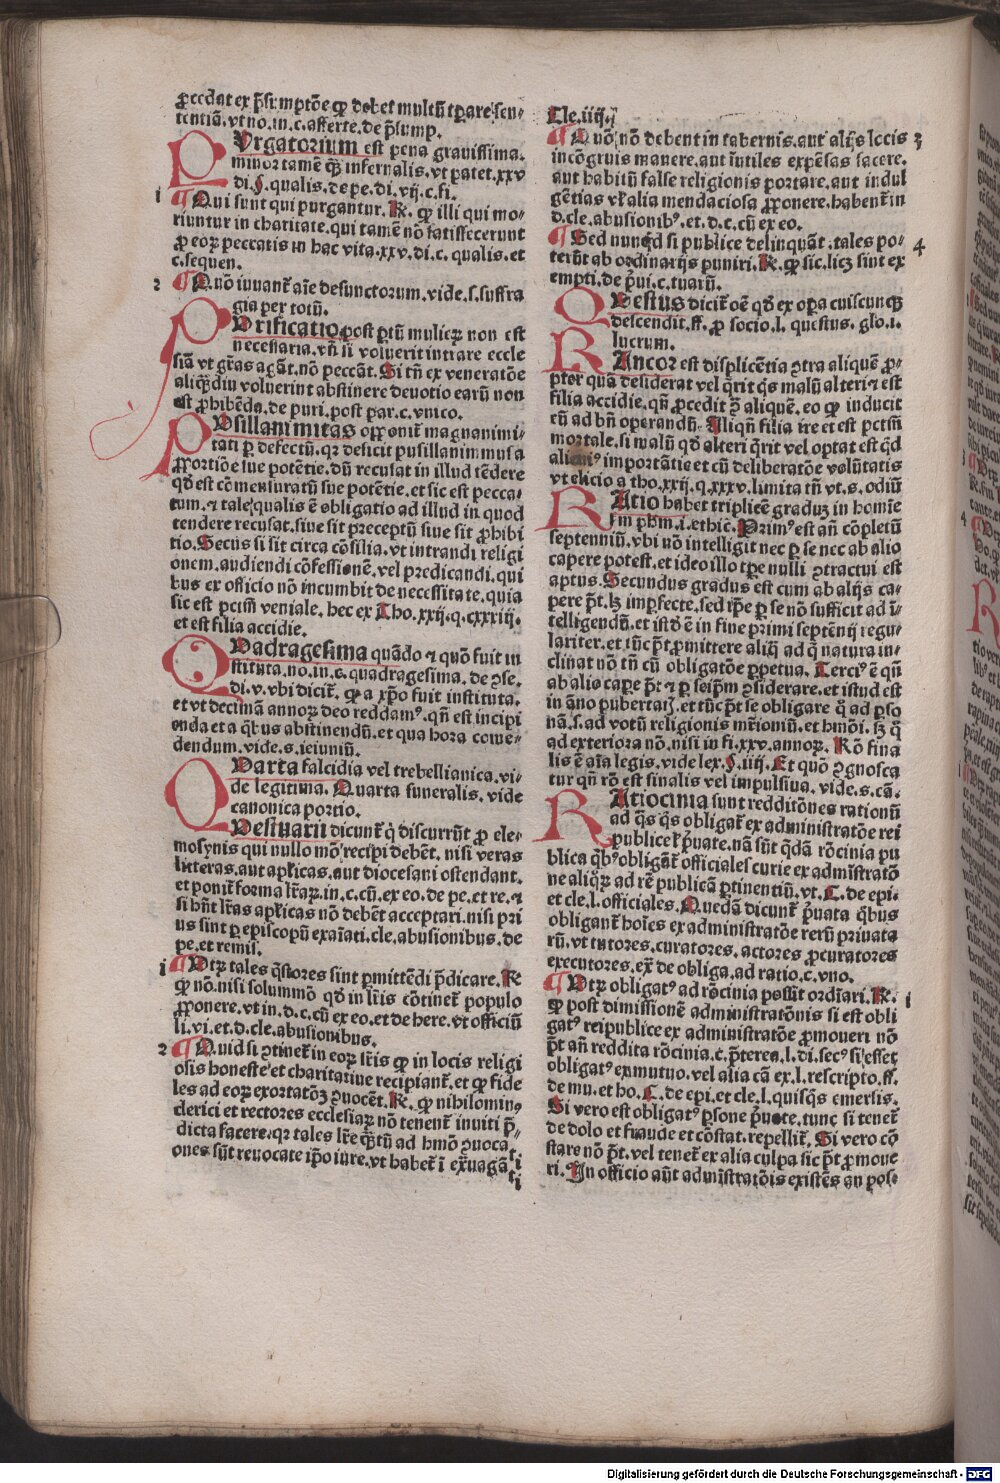 ꝓcedat ex p̄sumptōe ꝙ debet multū tꝑare sen⸗
tentiā. vt no. in. c. afferte. de p̄sump.
PUrgatorium est pena grauissima.
minor tamē qꝫ infernalis. vt patet. xxv
di. §. qualis. de pe. di. vij. c. fi.
1 ¶ Qui sunt qui purgantur. R̄. ꝙ illi qui mo⸗
riuntur in charitate. qui tamē nō satisfecerunt
ꝓ eoꝝ peccatis in hac vita. xxv. di. c. qualis. et
c. sequen.
2 ¶ Quō iuuant᷑ aīe defunctorum. vide. s. suffra
gia per totū.
PUrificatio post ptū mulieꝝ non est
necessaria. vn̄ si voluerit intrare eccle
siā vt gr̄as agāt. nō peccāt. Si tn̄ ex veneratōe
aliqꝫdiu voluerint abstinere deuotio earū non
est ꝓhibēda. de puri. post par. c. vnico.
PUsillanimitas opponit᷑ magnanimi⸗
tati ꝑ defectū. qꝛ deficit pusillanimus a
ꝓportiōe sue potētie. dū recusat in illud tēdere
qd̄ est cōmensuratū sue potētie. et sic est pecca⸗
tum. ⁊ tale qualis ē obligatio ad illud in quod
tendere recusat. siue sit preceptū siue sit ꝓhibi
tio. Secus si sit circa cōsilia. vt intrandi religi
onem. audiendi cōfessionē. vel predicandi. qui
bus ex officio nō incumbit de necessitate. quia
sic est pctm̄ veniale. hec ex Tho. xxij. q. cxxxiij.
et est filia accidie.
QUadragesima quādo ⁊ quō fuit in
stituta. no. in. c. quadragesima. de ꝯse.
di. v. vbi dicit᷑. ꝙ a xp̄o fuit instituta.
et vt decimā annoꝝ deo reddamꝰ. qn̄ est incipi
enda et a qbus abstinendū. et qua hora come⸗
dendum. vide. s. ieiuniū.
QUarta falcidia vel trebellianica. vi⸗
de legitima. Quarta funeralis. vide
canonica portio.
QUestuarii dicunt᷑ q̇ discurrūt ꝓ ele⸗
mosynis qui nullo mō recipi debēt. nisi veras
litteras. aut apl̄icas. aut diocesani ostendant.
et ponit᷑ forma lr̄aꝝ. in. c. cū. ex eo. de pe. et re. ⁊
si hn̄t lr̄as apl̄icas nō debēt acceptari. nisi pri
us sint ꝑ episcopū exaīati. cle. abusionibus. de
pe. et remis.
1 ¶ Utꝝ tales q̄stores sint ꝑmittēdi p̄dicare. R̄
ꝙ nō. nisi solummō qd̄ in lr̄is cōtinet᷑ populo
ꝓponere. vt in. d. c. cū ex eo. et de here. vt officiū
li. vi. et. d. cle. abusionibus.
2 ¶ Quid si ꝯtinet᷑ in eoꝝ lr̄is ꝙ in locis religi
osis honeste et charitatiue recipiant᷑. et ꝙ fide
les ad eoꝝ exortatōꝫ ꝯuocēt. R̄. ꝙ nihilominꝰ
clerici et rectores ecclesiaꝝ nō tenent᷑ inuiti p̄⸗
dicta facere. qꝛ tales lr̄e qꝫtū ad hmō ꝯuocati
ones sūt reuocate ip̄o iure. vt habet᷑ ī ex̄uagāti
Cle. iiij.
¶ Quō nō debent in tabernis. aut alijs locis 3
incōgruis manere. aut īutiles expēsas facere.
aut habitū false religionis portare. aut indul
gētias vl̓ alia mendaciosa ꝓponere. habent᷑ in
d. cle. abusionibꝰ. et. d. c. cū ex eo.
¶ Sed nunqd si publice delinquāt. tales po⸗ 4
terūt ab ordinarijs puniri. R̄. ꝙ sic. licꝫ sint ex
empti. de p̄ui. c. tuarū.
QUestus dicit᷑ oē qd̄ ex oꝑa cuiscunqꝫ
descendit. ff. ꝓ socio. l. questus. glo. i.
lucrum.
RAncor est displicētia ꝯtra aliquē ꝓ⸗
pter quā desiderat vel q̄rit qs malū alteri ⁊ est
filia accidie. qn̄ ꝓcedit ꝯ̄ aliquē. eo ꝙ inducit
eū ad bn̄ operandū. Aliqn̄ filia ire et est pctm̄
mortale. si malū qd̄ alteri q̄rit vel optat est qd
alicuiꝰ importātie et cū deliberatōe volūtatis
vt elicio a tho. xxij. q. xxxv. limita tn̄ vt. s. odiū
RAtio habet triplicē graduꝫ in homīe
fm̄ ph̄m. i. ethic̄. Primꝰ est an̄ cōpletū
septenniū. vbi nō intelligit nec ꝑ se nec ab alio
capere potest. et ideo illo tꝑe nulli ꝯtractui est
aptus. Secundus gradus est cum ab alijs ca⸗
pere pt̄. lꝫ imperfecte. sed ip̄e ꝑ se nō sufficit ad ī⸗
telligendū. et istd ē in fine primi septēnij regu⸗
lariter. et tūc pt̄ ꝑmittere aliq ad q̄ natura in⸗
clinat nō tn̄ cū obligatōe ꝑpetua. Terciꝰ ē qn̄
ab alia caꝑe pt̄ ⁊ ꝑ seip̄m ꝯsiderare. et istud est
in āno pubertatꝭ. et tūc pt̄ se obligare q̄ ad ꝑso
nā. s. ad votū religionis mr̄ioniū. et hmōi. lꝫ q̄
ad exteriora nō. nisi in fi. xxv. annoꝝ. Rō fina
lis ē aīa legis. vide lex. §. iiij. Et quō ꝯgnosca
tur qn̄ rō est finalis vel impulsiua. vide. s. cā.
RAtiocinia sunt redditōnes rationū
ad qs qs obligat᷑ ex administratōe rei
publice l̓ p̄uate. nā sūt qdā rōcinia pu
blica qbꝰ obligāt᷑ officiales curie ex admīstratō
ne aliqꝝ ad rē publicā ꝑtinentiū. vt. C. de epi.
et cle. l. officiales. Quedā dicunt᷑ p̄uata qbus
obligant᷑ hoīes ex administratōe rerū priuata
rū. vt tutores. curatores. actores ꝓcuratores
executores. ex̄ de obliga. ad ratio. c. vno.
¶ Utꝝ obligatꝰ ad rōcinia possit ordīari. R̄. 1
ꝙ post dimissionē administratōnis si est obli
gatꝰ reipublice ex administratōe ꝓmoueri nō
pt̄ an̄ reddita rōcinia. c̄. p̄terea. l. di. secꝰ si esset
obligatꝰ ex mutuo. vel alia cā ex. l. rescripto. ff.
de mu. et ho. C. de epi. et cle. l. quisqs emersis.
Si vero est obligatꝰ ꝑsone p̄uate. tunc si tenet᷑
de dolo et fraude et cōstat. repellit᷑. Si vero cō
stare nō pt̄. vel tenet᷑ ex alia culpa sic pt̄ ꝓmoue
ri. In officio aūt admīstratōis existēs an pos⸗
Digitalisierung gefördert durch die Deutsche Forschungsgemeinschaft - DFG